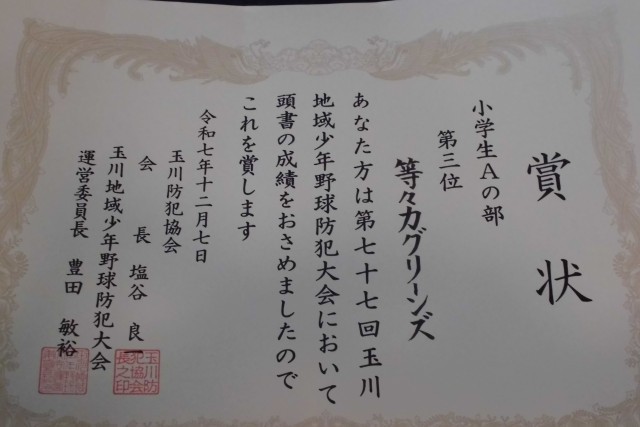 賞状
小学生Aの部
第三位
等々力グリーンズ
あなた方は第七十七回玉川
地域少年野球防犯大会において
頭書の成績をおさめましたので
これを賞します
令和七年十二月七日
玉川防犯協会
会長 塩谷良一
玉川地域少年野球防犯大会
運営委員長 豊田敏裕
玉川防
犯協会
長之印